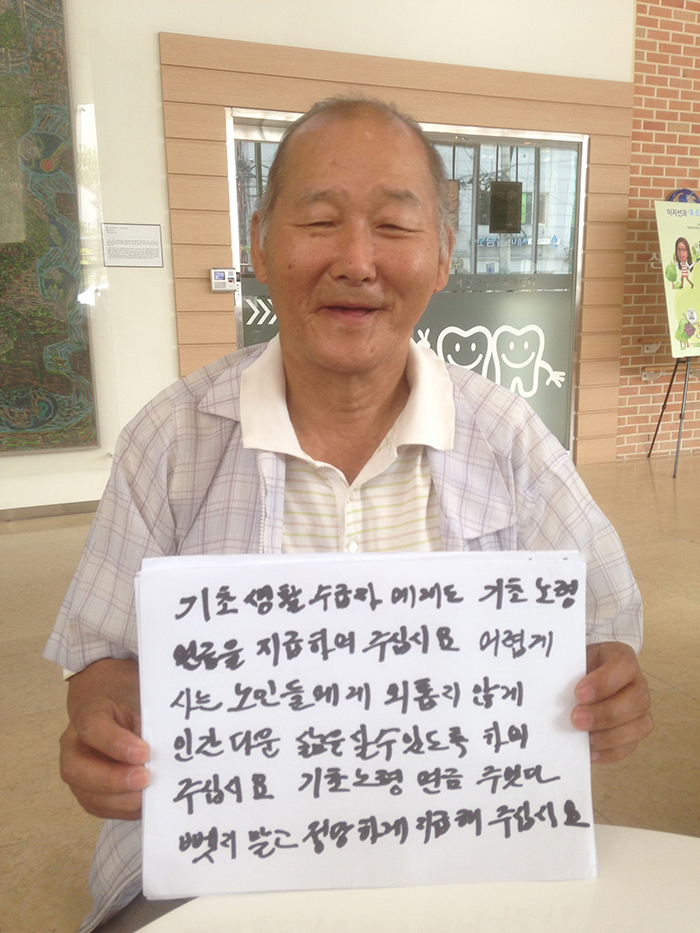 기초 생활 수급자 에게도 기초 노령
연금을 지급하여 주십시요 어렵게
사는 노인들에게 외롭지 않게
인간 다운 삶을 살수있도록 하여
주십시요 기초노령 연금 주엇다
뺏지 말고 정당하게 지급해 주십시요
이지선과